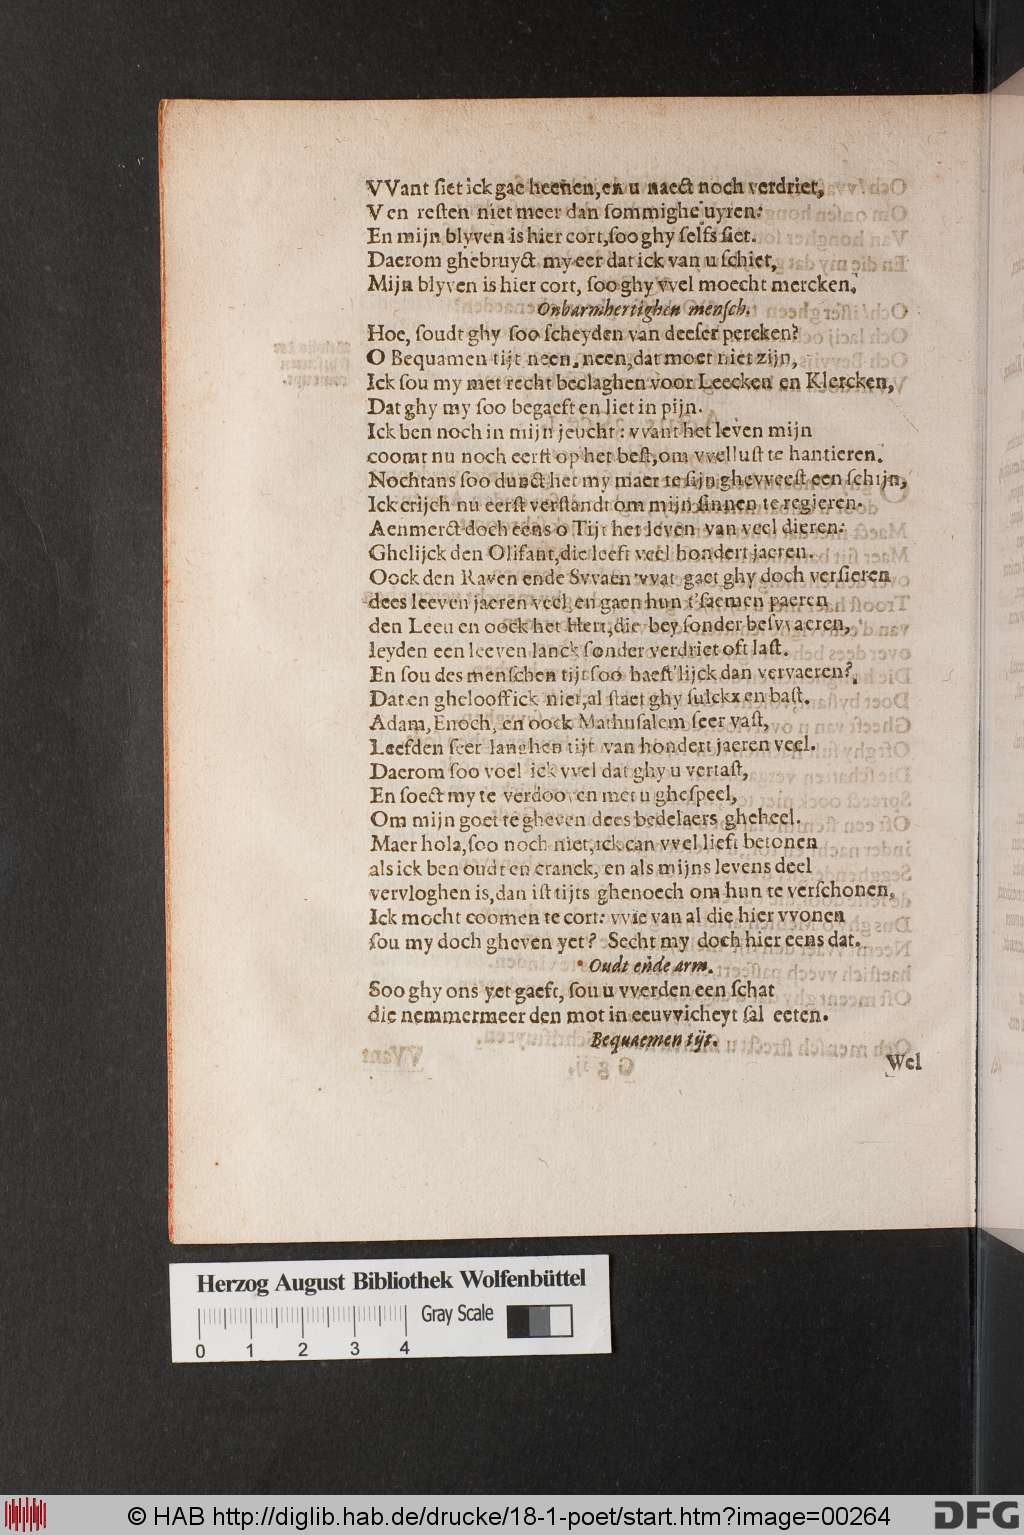 VVant ſiet ick gae heenen, en u naect noch verdriet,
V en reſten niet meer dan ſommighe uyren:
En mijn blyven is hier cort, ſoo ghy ſelfs ſiet.
Daerom ghebruyct my eer dat ick van u ſchiet,
Mijn blyven is hier cort, ſoo ghy vvel moecht mercken.
Onbarmhertighen menſch.
Hoe, ſoudt ghy ſoo ſcheyden van deeſer percken?
O Bequamen tijt neen, neen, dat moet niet zijn,
Ick ſou my met recht beclaghen voor Leecken en Klercken,
Dat ghy my ſoo begaeft en liet in pijn.
Ick ben noch in mijn jeucht: vvant het leven mijn
coomt nu noch eerſt op het beſt, om vvelluſt te hantieren.
Nochtans ſoo dunct het my maer te ſijn ghevveeſt een ſchijn,
Ick crijch nu eerſt verſtandt om mijn ſinnen te regieren.
Aenmerct doch eens o Tijt het leven van veel dieren:
Ghelijck den Olifant, die leeft veel hondert jaeren.
Oock den Raven ende Svvaen vvat gaet ghy doch verſieren
dees leeven jaeren veel en gaen hun t'ſaemen paeren
den Leeu en oock het Hert, die bey ſonder beſvvaeren,
leyden een leeven lanck ſonder verdriet oft laſt.
En ſou des menſchen tijt ſoo haeſt'lijck dan vervaeren?
Dat en ghelooff ick niet, al ſtaet ghy ſulckx en baſt.
Adam, Enoch, en oock Mathuſalem ſeer vaſt,
Leefden ſeer langhen tijt van hondert jaeren veel.
Daerom ſoo voel ick vvel dat ghy u vertaſt,
En ſoect my te verdooven met u gheſpeel,
Om mijn goet te gheven dees bedelaers gheheel.
Maer hola, ſoo noch niet, ick can vvel lieft betonen
als ick ben oudt en cranck, en als mijns levens deel
vervloghen is, dan iſt tijts ghenoech om hun te verſchonen.
Ick mocht coomen te cort: vvie van al die hier vvonen
ſou my doch gheven yet? Secht my doch hier eens dat.
Oudt eñde arm.
Soo ghy ons yet gaeft, ſou u vverden een ſchat
die nemmermeer den mot in eeuvvicheyt ſal eeten.
Bequaemen tijt.
Wel
Herzog August Bibliothek Wolfenbüttel
Gray Scale
0 1 2 3 4
© HAB http://diglib.hab.de/drucke/18-1-poet/start.htm?image=00264
DFG